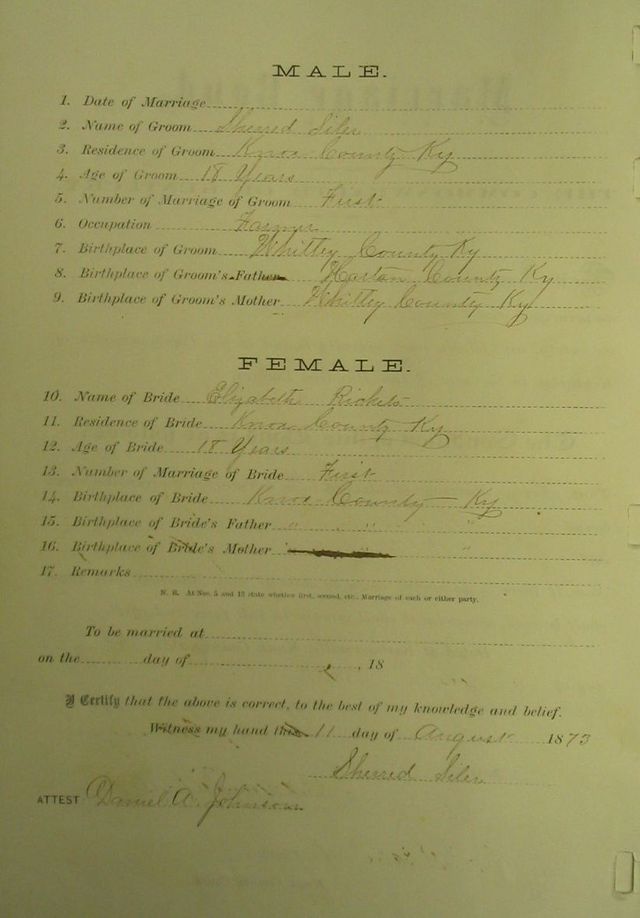 MALE.
1. Date of Marriage
2. Name of Groom Sherred Siler
3. Residence of Groom Knox County Ky
4. Age of Groom 18 Years
5. Number of Marriage of Groom First
6. Occupation Farmer
7. Birthplace of Groom Whitley County Ky
8. Birthplace of Groom's Father Harlan County Ky
9. Birthplace of Groom's Mother Whitley County Ky
FEMALE.
10. Name of Bride Elizabeth Rickets
11. Residence of Bride Knox County Ky
12. Age of Bride 18 Years
13. Number of Marriage of Bride First
14. Birthplace of Bride Knox County Ky
15. Birthplace of Bride's Father " " "
16. Birthplace of Bride's Mother "
17. Remarks
N. B. At Nos. 5 and 13 state whether first, second, etc., Marriage of each or either party.
To be married at
on the day of , 18
I Certify that the above is correct, to the best of my knowledge and belief.
Witness my hand this 11 day of August 1873
Sherred Siler
ATTEST Daniel A. Johnson